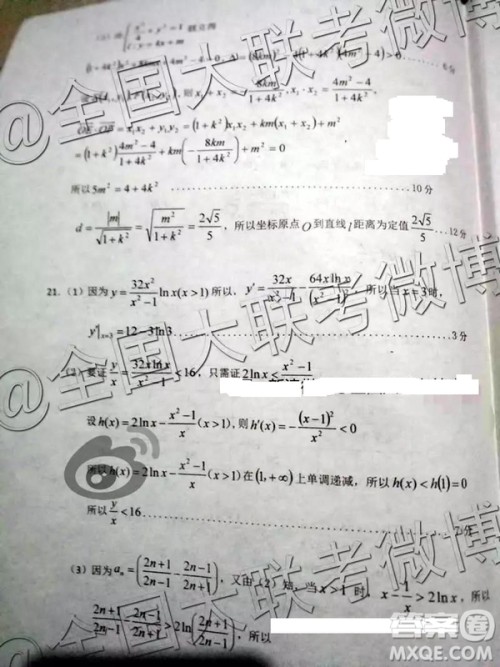 (2) 由 { x²/4 + y² = 1, l: y = kx + m 联立得
(1+4k²)x² + 8km x + 4m² - 4 = 0, Δ = (8km)² - 4(1+4k²)(4m² - 4) > 0 ……6分
则 x₁ + x₂ = -8km/(1+4k²), x₁·x₂ = (4m² - 4)/(1+4k²),
x₁x₂ + y₁y₂ = (1+k²)x₁x₂ + km(x₁ + x₂) + m²
= (1+k²)(4m² - 4)/(1+4k²) + km(-8km/(1+4k²)) + m² = 0
所以 5m² = 4 + 4k² ……10分
d = |m|/√(1+k²) = √(m²/(1+k²)) = 2√5/5, 所以坐标原点 O 到直线 l 距离为定值 2√5/5 ……12分
21. (1) 因为 y = 32x²/(x²-1) ln x (x>1) 所以, y' = 32x/(x²-1) - 64x ln x/(x²-1)², 所以当 x = 3 时,
y'|ₓ₌₃ = 12 - 3ln3 ……3分
(2) 要证 y/x = 32x ln x/(x²-1) < 16, 只需证 2ln x < (x²-1)/x
设 h(x) = 2ln x - (x²-1)/x (x>1), 则 h'(x) = -(x-1)²/x² < 0
所以 h(x) = 2ln x - (x²-1)/x (x>1) 在 (1, +∞) 上单调递减, 所以 h(x) < h(1) = 0
所以 y/x < 16 ……分
(3) 因为 aₙ = ((2n+1)/(2n-1) - (2n-1)/(2n+1)), 又由 (2) 知, 当 x > 1 时, x - 1/x > 2ln x, 所以
(2n+1)/(2n-1) - (2n-1)/(2n+1) > 2ln((2n+1)/(2n-1)), 所以
@全国大联考微博
@全国大联考微博
@全国大联考微博
答案圈
MXQE.COM